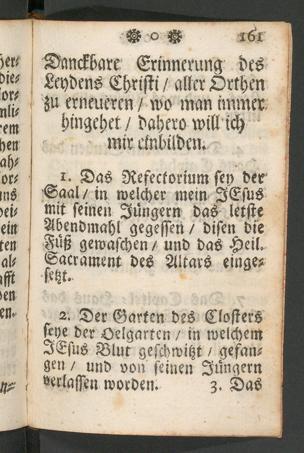 ❀ o ❀ 161
Danckbare Erinnerung des
Leydens Christi / aller Orthen
zu erneueren / wo man immer
hingehet / dahero will ich
mir einbilden.
1. Das Refectorium sey der
Saal / in welcher mein JEsus
mit seinen Jüngern das letste
Abendmahl gegessen / disen die
Füß gewaschen / und das Heil.
Sacrament des Altars einge-
setzt.
2. Der Garten des Closters
seye der Oelgarten / in welchem
JEsus Blut geschwitzt / gefan-
gen / und von seinen Jüngern
verlassen worden. 3. Das